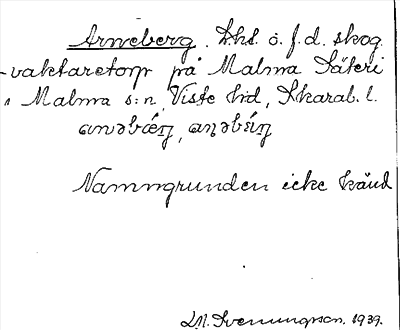 Arneberg. Lhs o. f. d. skog-
vaktaretorp på Malma Säteri
i Malma s:n, Viste hd, Skarab. l.
Namngrunden icke känd
Svenungsson. 1939.